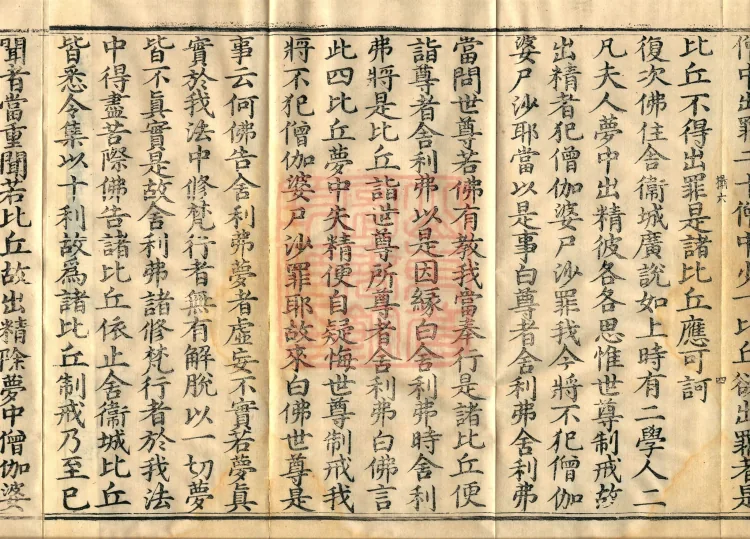 僧中出罪二十僧中少一比丘欲出罪者是
四
比丘不得出罪是諸比丘應可訶
復次佛住舍衞城廣說如上時有二學人二
凡夫人夢中出精彼各各思惟世尊制戒故
出精者犯僧伽婆尸沙罪我今將不犯僧伽
婆尸沙耶當以是事白尊者舍利弗舍利弗
當問世尊若佛有教我當奉行是諸比丘便
詣尊者舍利弗以是因緣白舍利弗時舍利
弗將是比丘詣世尊所尊者舍利弗白佛言
此四比丘夢中失精便自疑悔世尊制戒我
將不犯僧伽婆尸沙罪耶故來白佛世尊是
事云何佛告舍利弗夢者虛妄不實若夢眞
實於我法中修梵行者無有解脫以一切夢
皆不眞實是故舍利弗諸修梵行者於我法
中得盡苦際佛告諸比丘依止舍衞城比丘
皆悉令集以十利故爲諸比丘制戒乃至已
聞者當重聞若比丘故出精除夢中僧伽婆